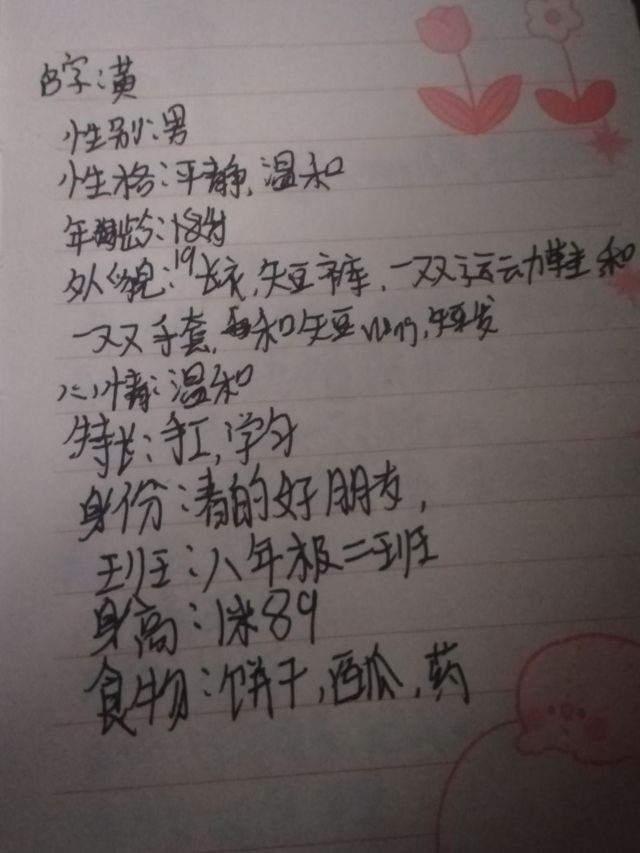 名字：黄
性别：男
性格：平静，温和
年龄：18岁
外貌：长衣，短裤，一双运动鞋和
一双手套，和短，短发
心情：温和
特长：手工，学习
身份：春的好朋友，
班班：八年级二班
身高：1米89
食物：饼干，西瓜，药